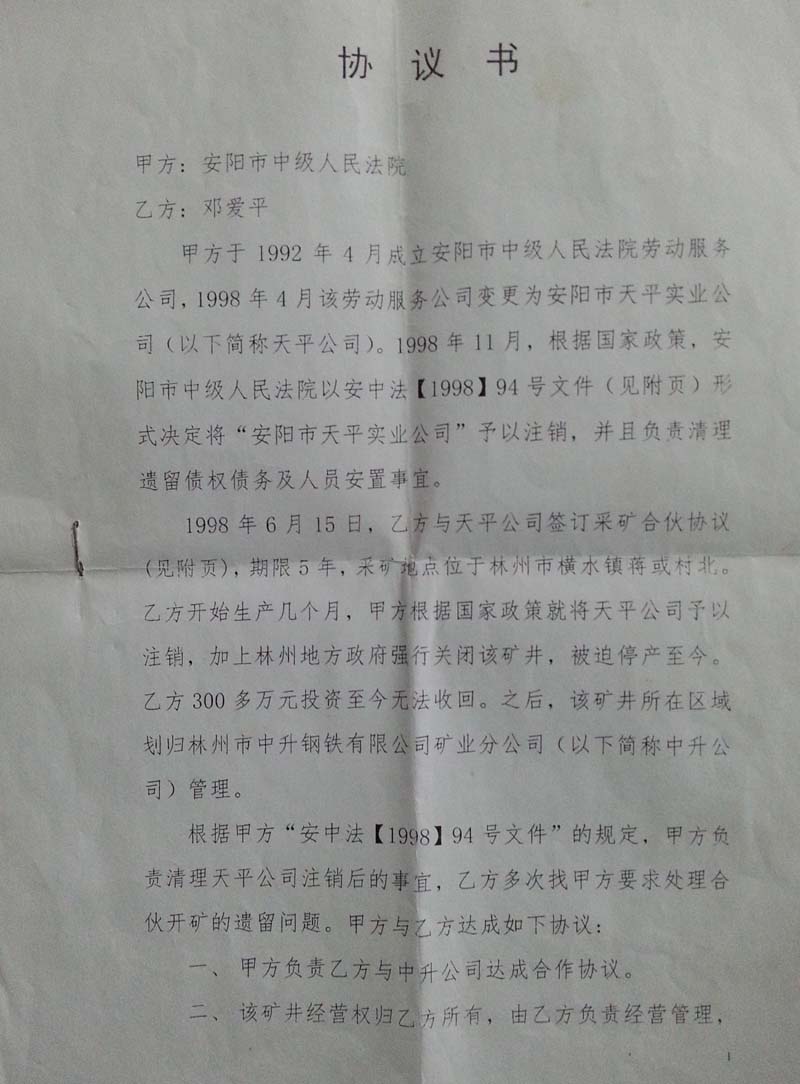 协 议 书
甲方：安阳市中级人民法院
乙方：邓爱平
甲方于 1992 年 4 月成立安阳市中级人民法院劳动服务
公司，1998 年 4 月该劳动服务公司变更为安阳市天平实业公
司（以下简称天平公司）。1998 年 11 月，根据国家政策，安
阳市中级人民法院以安中法【1998】94 号文件（见附页）形
式决定将“安阳市天平实业公司”予以注销，并且负责清理
遗留债权债务及人员安置事宜。
1998 年 6 月 15 日，乙方与天平公司签订采矿合伙协议
（见附页），期限 5 年，采矿地点位于林州市横水镇蒋或村北。
乙方开始生产几个月，甲方根据国家政策就将天平公司予以
注销，加上林州地方政府强行关闭该矿井，被迫停产至今。
乙方 300 多万元投资至今无法收回。之后，该矿井所在区域
划归林州市中升钢铁有限公司矿业分公司（以下简称中升公
司）管理。
根据甲方“安中法【1998】94 号文件”的规定，甲方负
责清理天平公司注销后的事宜，乙方多次找甲方要求处理合
伙开矿的遗留问题。甲方与乙方达成如下协议：
一、甲方负责乙方与中升公司达成合作协议。
二、该矿井经营权归乙方所有，由乙方负责经营管理，
1